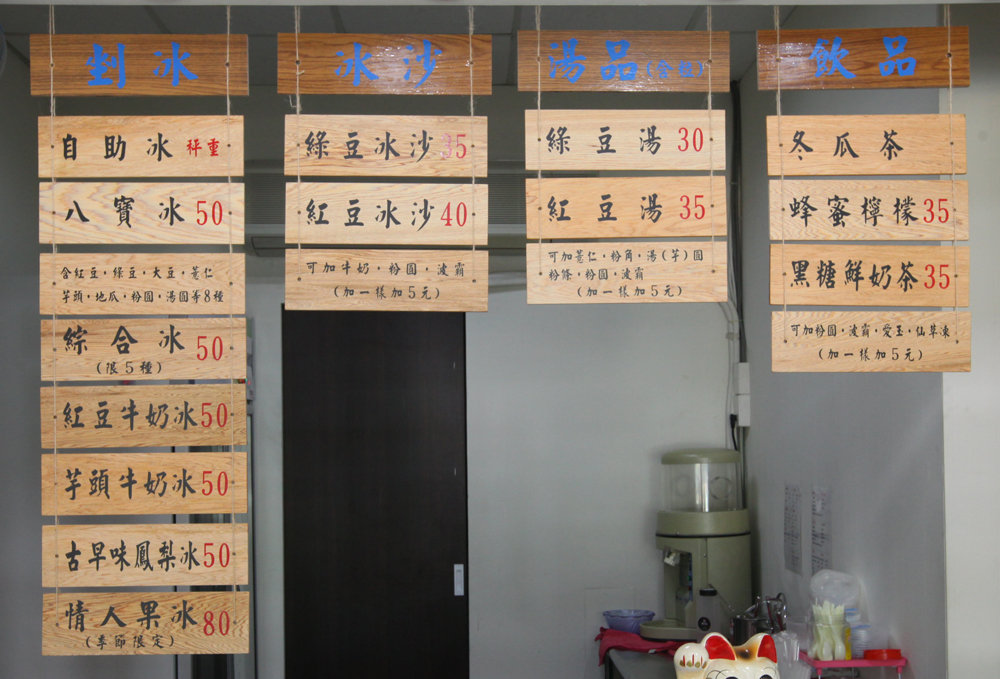 剉冰
自助冰 秤重
八寶冰 50
含紅豆·綠豆·大豆·薏仁
芋頭·地瓜·粉圓·湯圓等8種
綜合冰 50
(限5種)
紅豆牛奶冰 50
芋頭牛奶冰 50
古早味鳳梨冰 50
情人果冰 80
(季節限定)
冰沙
綠豆冰沙 35
紅豆冰沙 40
可加牛奶·粉圓·波霸
(加一樣加5元)
湯品
綠豆湯 30
紅豆湯 35
可加薏仁·粉角·湯(芋)圓
粉條·粉圓·波霸
(加一樣加5元)
飲品
冬瓜茶
蜂蜜檸檬 35
黑糖鮮奶茶 35
可加粉圓·波霸·愛玉·仙草凍
(加一樣加5元)